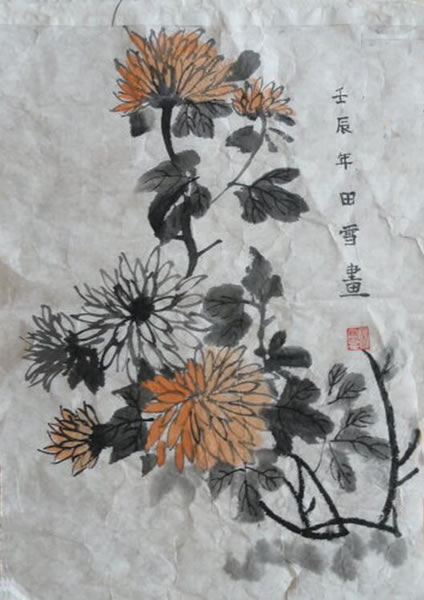 壬辰年田雪畫